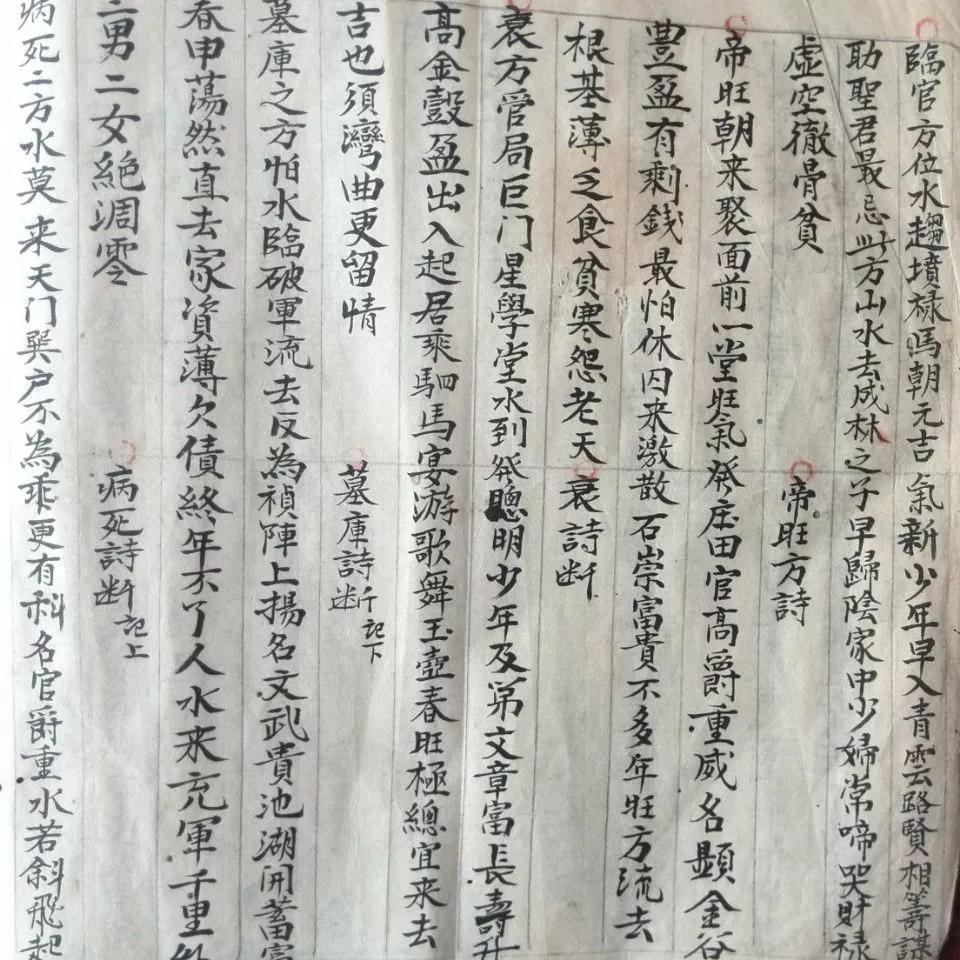 臨官方位水趨墳禄馬朝元吉氣新少年早入青雲路賢相籌謀
助聖君最忌此方山水去成林之子早歸陰家中少婦常啼哭財禄
虛空徹骨貧
帝旺方詩
帝旺朝来聚面前一堂旺氣發庄田官高爵重威名顯金谷
豊盈有剩銭最怕休囚来激散石崇富貴不多年旺方流去
根基薄乏食貧寒怨老天
衰詩断
衰方管局巨门星學堂水到發聰明少年及第文章富長壽升
高金穀盈出入起居乘駟馬宴游歌舞玉壺春旺極總宜来去
吉也須灣曲更留情
墓庫詩断
記下
墓庫之方怕水臨破軍流去反為禎陣上揚名文武貴池湖開蓄富
春申蕩然直去家資薄欠債終年不了人水来充軍千里外
二男二女絕凋零
病死詩断
記上
病死二方水莫来天门巽户不為乖更有科名官爵重水若斜飛起